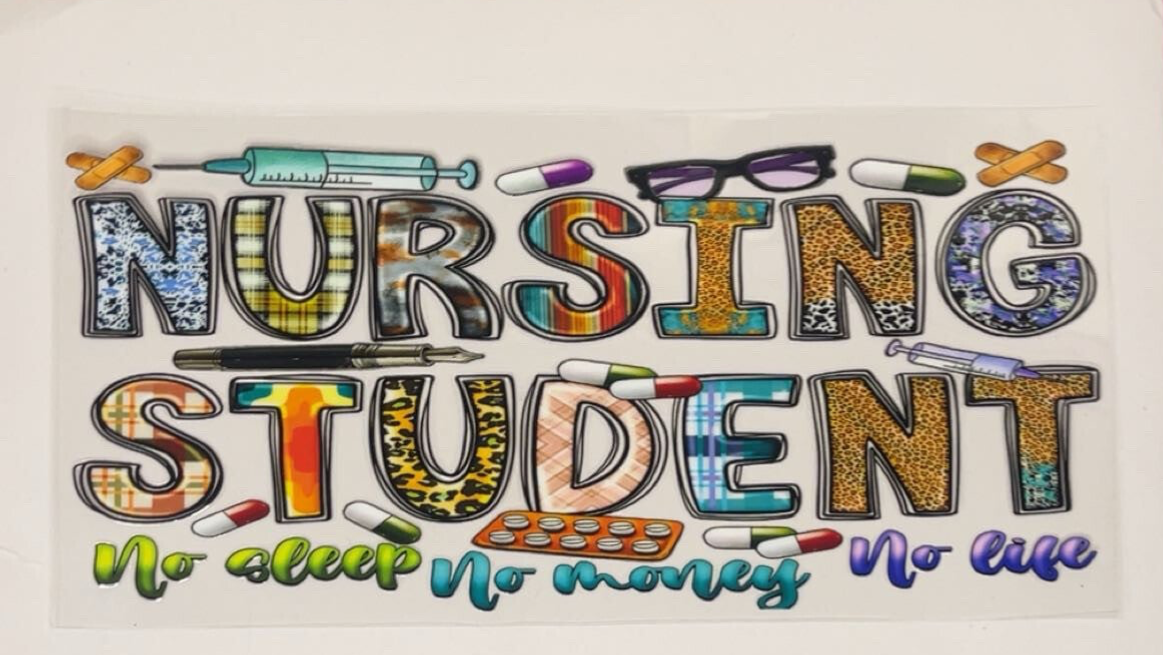 NURSING
STUDENT
No sleep No money No life